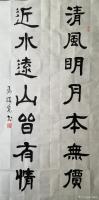 清風明月本無價
近水遠山皆有情